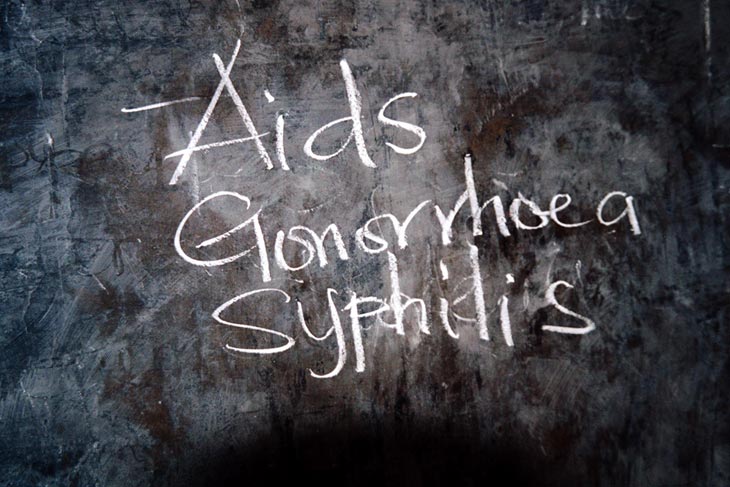 - Aids
Gonorrhoea
Syphilis